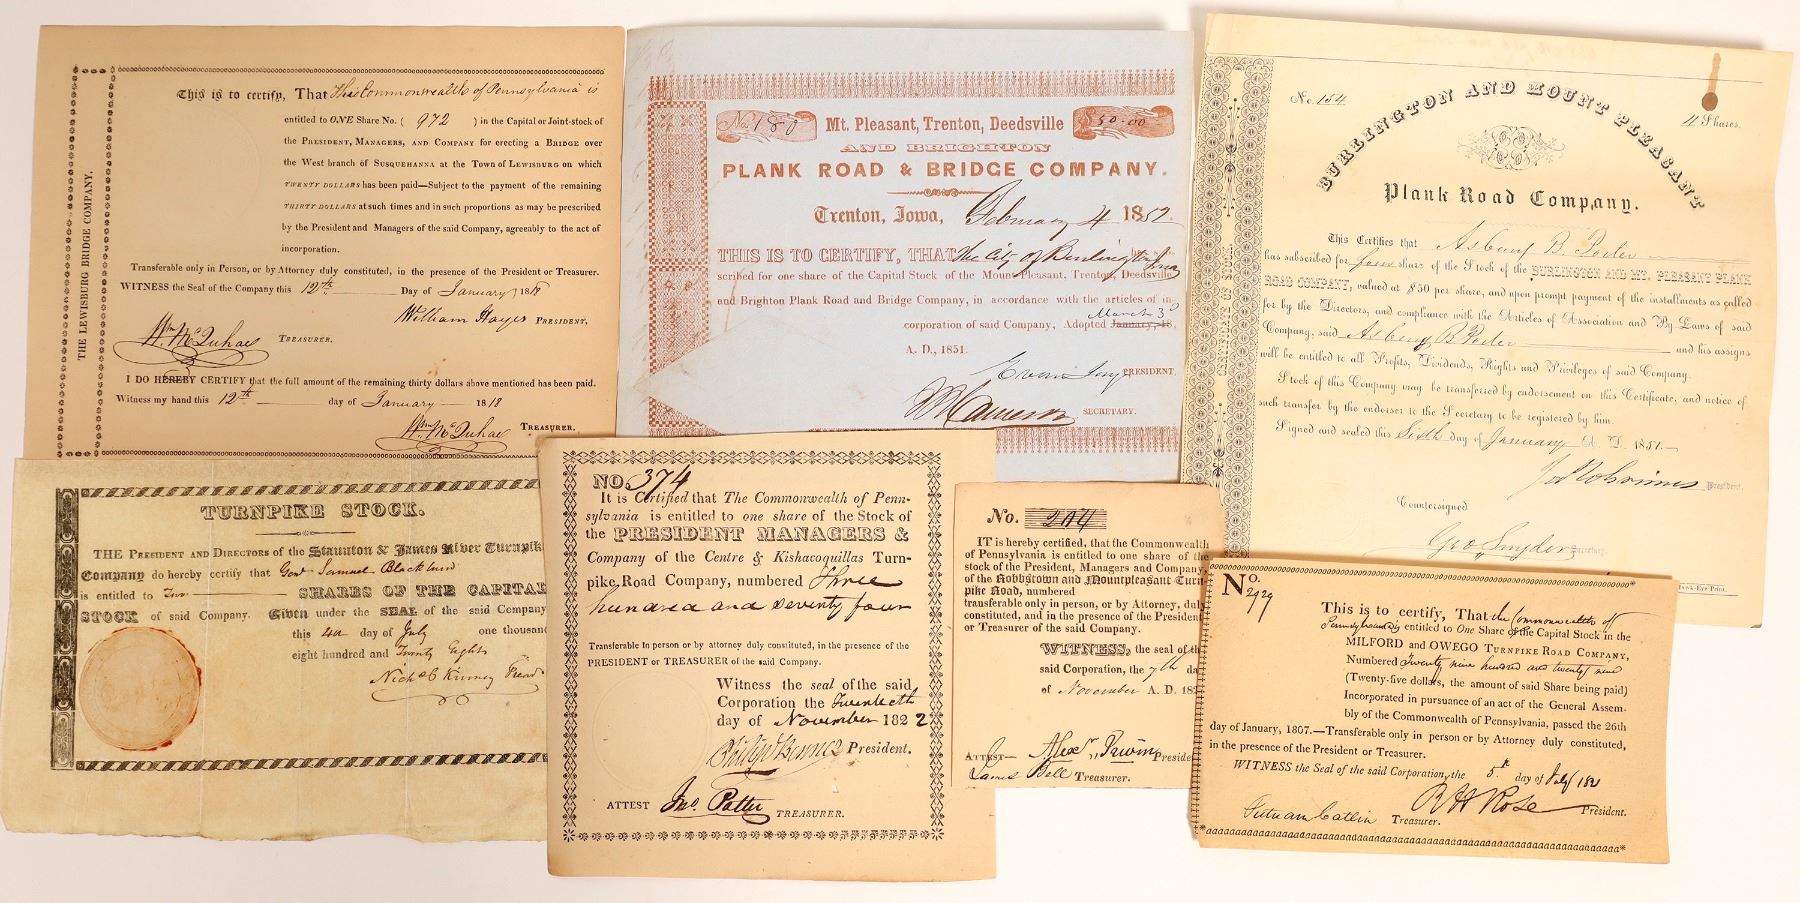 THE LEWISBURG BRIDGE COMPANY.
This is to certify, That The Commonwealth of Pennsylvania is
entitled to ONE Share No. ( 972 ) in the Capital or Joint-stock of
the PRESIDENT, MANAGERS, AND COMPANY for erecting a BRIDGE over
the West branch of SUSQUEHANNA at the Town of LEWISBURG on which
TWENTY DOLLARS has been paid—Subject to the payment of the remaining
THIRTY DOLLARS at such times and in such proportions as may be prescribed
by the President and Managers of the said Company, agreeably to the act of
incorporation.
Transferable only in Person, or by Attorney duly constituted, in the presence of the President or Treasurer.
WITNESS the Seal of the Company this 12th Day of January 1818
William Hayes PRESIDENT,
Wm McQuhae TREASURER.
I DO HEREBY CERTIFY that the full amount of the remaining thirty dollars above mentioned has been paid.
Witness my hand this 12th day of January 1818
Wm McQuhae TREASURER.
No. 180 Mt. Pleasant, Trenton, Deedsville $50.00
AND BRIGHTON
PLANK ROAD & BRIDGE COMPANY.
Trenton, Iowa, February 4 1852
THIS IS TO CERTIFY, THAT The City of Burlington
scribed for one share of the Capital Stock of the Mount Pleasant, Trenton, Deedsville
and Brighton Plank Road and Bridge Company, in accordance with the articles of in-
March 3
corporation of said Company, Adopted January 18,
A. D., 1851.
PRESIDENT
Cameron SECRETARY.
No. 154
4 Shares.
BURLINGTON AND MOUNT PLEASANT
Plank Road Company.
CERTIFICATE OF STOCK.
This Certifies that Asbury B Porter
has subscribed for four share of the Stock of the BURLINGTON AND MT. PLEASANT PLANK
ROAD COMPANY, valued at $50 per share, and upon prompt payment of the installments as called
for by the Directors, and compliance with the Articles of Association and By-Laws of said
Company, said Asbury B Porter and his assigns
will be entitled to all Profits, Dividends, Rights and Privileges of said Company.
Stock of this Company may be transferred by endorsement on this Certificate, and notice of
such transfer by the endorser to the Secretary to be registered by him.
Signed and sealed this Sixth day of January A. D. 1851.
President.
Countersigned
Geo Snyder Secretary.
Hawk-Eye Print.
TURNPIKE STOCK.
THE PRESIDENT AND DIRECTORS of the Staunton & James River Turnpike
Company do hereby certify that Genl Samuel Blackburn
is entitled to Two SHARES OF THE CAPITAL
STOCK of said Company. Given under the SEAL of the said Company
this 4th day of July one thousand
eight hundred and Twenty Eight
Nichs C Kinney Presdt
NO. 374
It is Certified that The Commonwealth of Penn-
sylvania is entitled to one share of the Stock of
the PRESIDENT MANAGERS &
Company of the Centre & Kishacoquillas Turn-
pike Road Company, numbered three
hundred and seventy four
Transferable In person or by attorney duly constituted, in the presence of the
PRESIDENT or TREASURER of the said Company.
Witness the seal of the said
Corporation the Twentieth
day of November 1822
Philip Benner President.
ATTEST Jno. Potter TREASURER.
No. 204
IT is hereby certified, that the Commonwealth
of Pennsylvania is entitled to one share of the
stock of the President, Managers and Company
of the Robbstown and Mountpleasant Turn-
pike Road, numbered
transferable only in person, or by Attorney, duly
constituted, and in the presence of the President
or Treasurer of the said Company.
WITNESS, the seal of the
said Corporation, the 7th day
of November A. D. 182
ATTEST— Alexr Irwin President
James Bell Treasurer.
No.
2929
This is to certify, That the Commonwealth of
Pennsylvania is entitled to One Share of the Capital Stock in the
MILFORD and OWEGO TURNPIKE ROAD COMPANY,
Numbered Twenty nine hundred and twenty nine
(Twenty-five dollars, the amount of said Share being paid)
Incorporated in pursuance of an act of the General Assem-
bly of the Commonwealth of Pennsylvania, passed the 26th
day of January, 1807.—Transferable only in person or by Attorney duly constituted,
in the presence of the President or Treasurer.
WITNESS the Seal of the said Corporation, the 5th day of July 182
R H Rose President.
Putnam Catlin Treasurer.